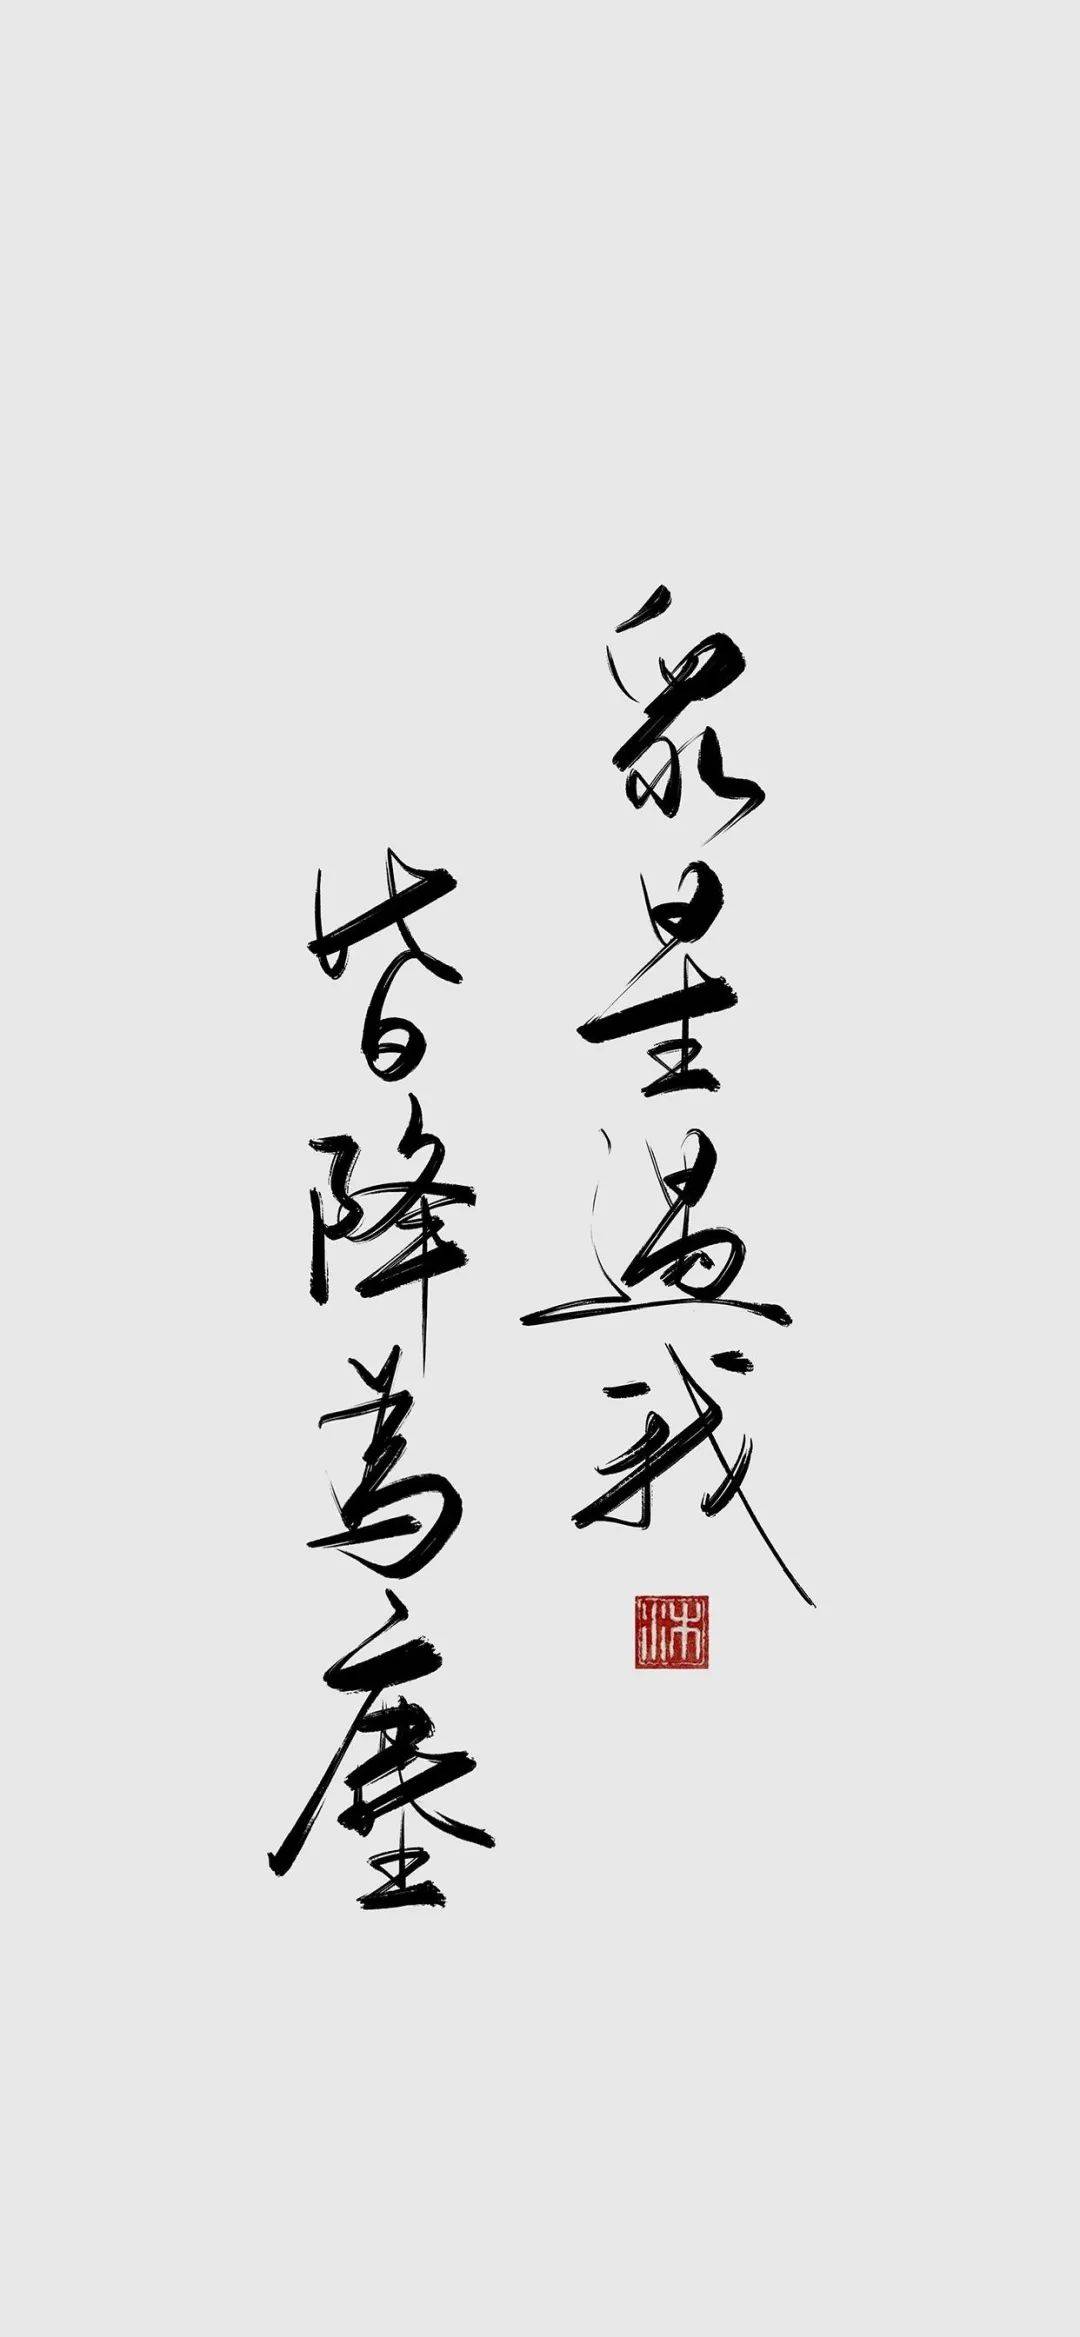 衆星遇我
皆降為塵
沐